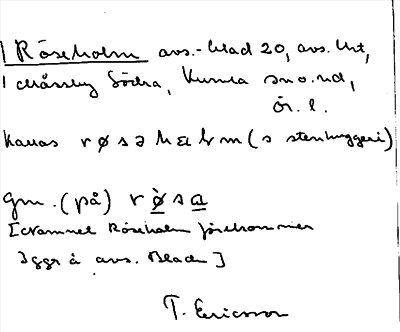 1 Röseholm avs.-blad 20, avs. Unt,
1 Mässby Södra, Kumla sn o. nd,
Ör. l.
Kallas r ø s ə h ɑ l m (s stenhuggeri)
gm. (på) r ø̀ s a
[Namnet Röseholm förekommer
3 ggr å avs. Bladen]
T. Ericsson